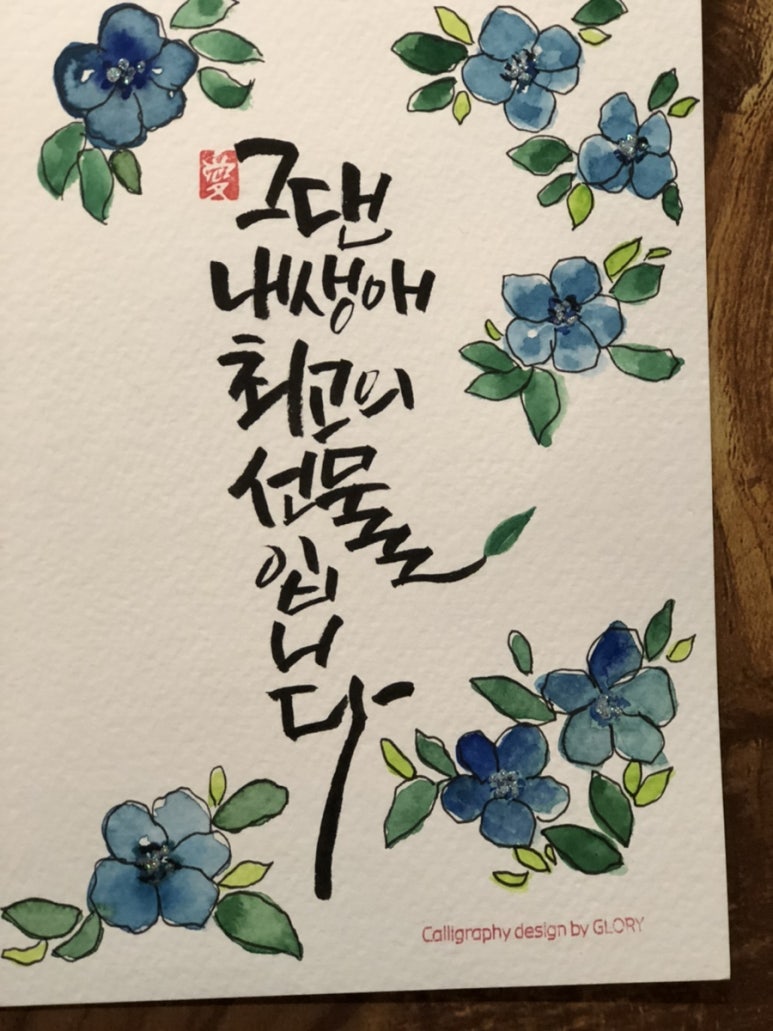 愛
그댄
내생애
최고의
선물
입
니
다
Calligraphy design by GLORY